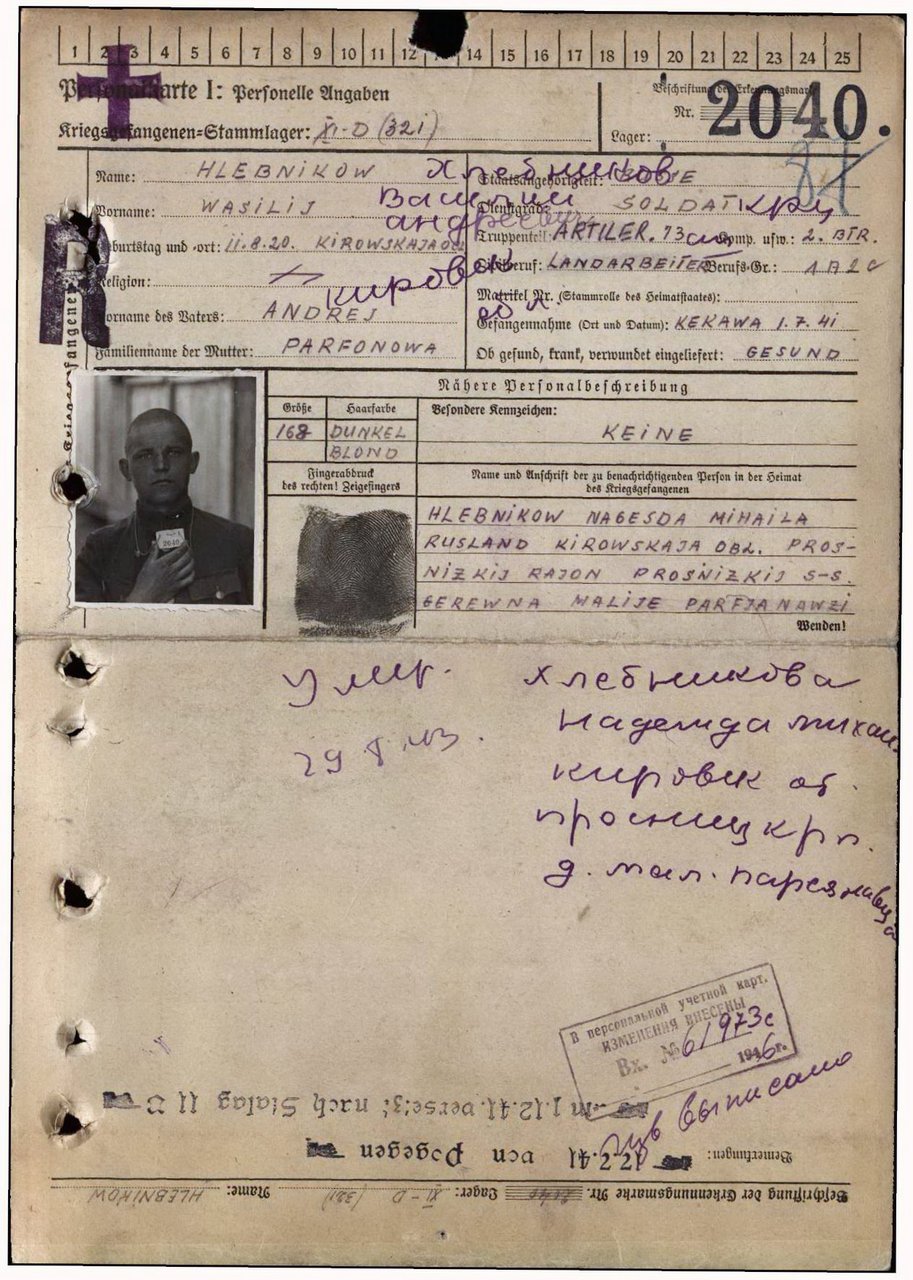 1 2 3 4 5 6 7 8 9 10 11 12 14 15 16 17 18 19 20 21 22 23 24 25
Personalkarte I: Personelle Angaben
Beschriftung der Erkennungsmarke
Nr. 2040.
Kriegsgefangenen-Stammlager: XI-D (321)
Lager:
Name: HLEBNIKOW
Хлебников
Staatsangehörigkeit:
Vorname: WASILIJ
Василий
Dienstgrad: SOLDAT
кр
Андреевич
Geburtstag und -ort: 11.8.20. KIROWSKAJA
Truppenteil: ARTILER. 73 Komp. usw.: 2. BTR.
Religion:
Кировск
Zivilberuf: LANDARBEITER Berufs-Gr.:
Matrikel Nr. (Stammrolle des Heimatstaates):
Vorname des Vaters: ANDREJ
Gefangennahme (Ort und Datum): KEKAWA 1.7.41
Familienname der Mutter: PARFONOWA
Ob gesund, krank, verwundet eingeliefert: GESUND
Nähere Personalbeschreibung
Größe Haarfarbe Besondere Kennzeichen:
168 DUNKEL
BLOND
KEINE
Fingerabdruck
des rechten! Zeigefingers
Name und Anschrift der zu benachrichtigenden Person in der Heimat
des Kriegsgefangenen
2040
HLEBNIKOW NAGESDA MIHAILA
RUSLAND KIROWSKAJA OBL. PROS-
NIZKIJ RAJON PROSNIZKIJ S-S.
GEREWNA MALIJE PARFJANAWZI
Wenden!
Умер.
Хлебникова
Надежда Михаи
Кировск об.
Просницк рн.
д. мал.
В персональной учетной карт.
ИЗМЕНЕНИЯ ВНЕСЕНЫ
Вх. № 61973с
1946г.
выписано
Bemerkungen: 12.2.41 von Pogegen
Am 1.12.41 versetzt nach Stalag 11 D
Beschriftung der Erkennungsmarke Nr. 2040 Lager: XI-D (321) Name: HLEBNIKOW